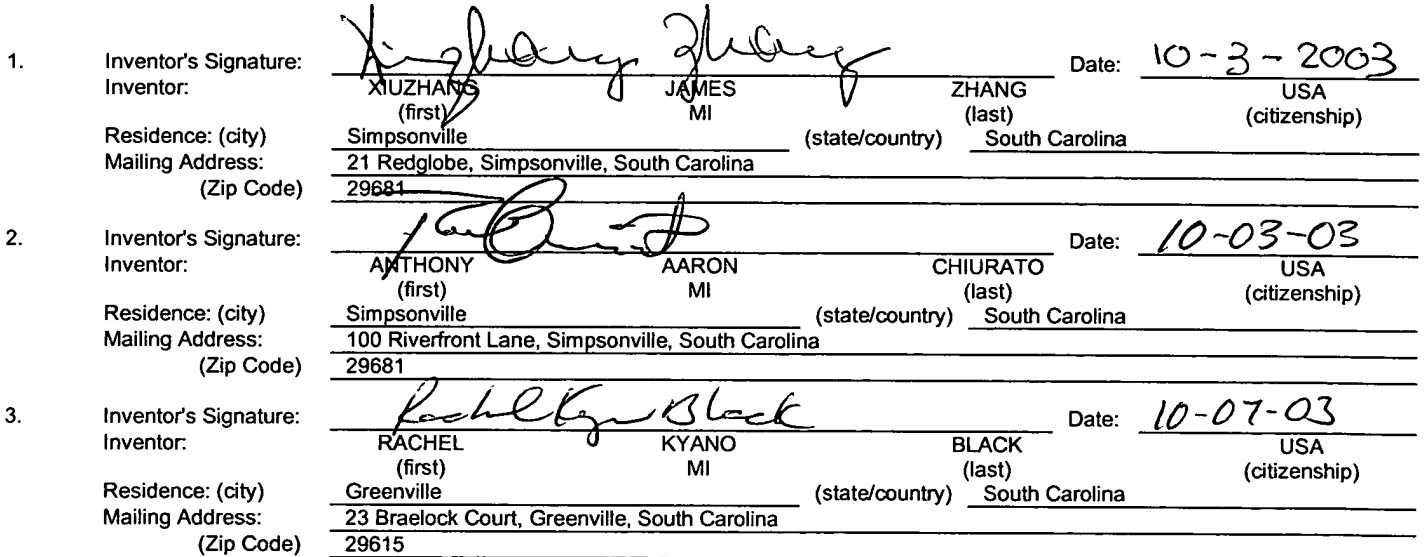 1. Inventor's Signature: Xiuzhang Zhang Date: 10-3-2003
Inventor: XIUZHANG JAMES ZHANG USA
(first) MI (last) (citizenship)
Residence: (city) Simpsonville (state/country) South Carolina
Mailing Address: 21 Redglobe, Simpsonville, South Carolina
(Zip Code) 29681
2. Inventor's Signature: Date: 10-03-03
Inventor: ANTHONY AARON CHIURATO USA
(first) MI (last) (citizenship)
Residence: (city) Simpsonville (state/country) South Carolina
Mailing Address: 100 Riverfront Lane, Simpsonville, South Carolina
(Zip Code) 29681
3. Inventor's Signature: Rachel Kyano Black Date: 10-07-03
Inventor: RACHEL KYANO BLACK USA
(first) MI (last) (citizenship)
Residence: (city) Greenville (state/country) South Carolina
Mailing Address: 23 Braelock Court, Greenville, South Carolina
(Zip Code) 29615